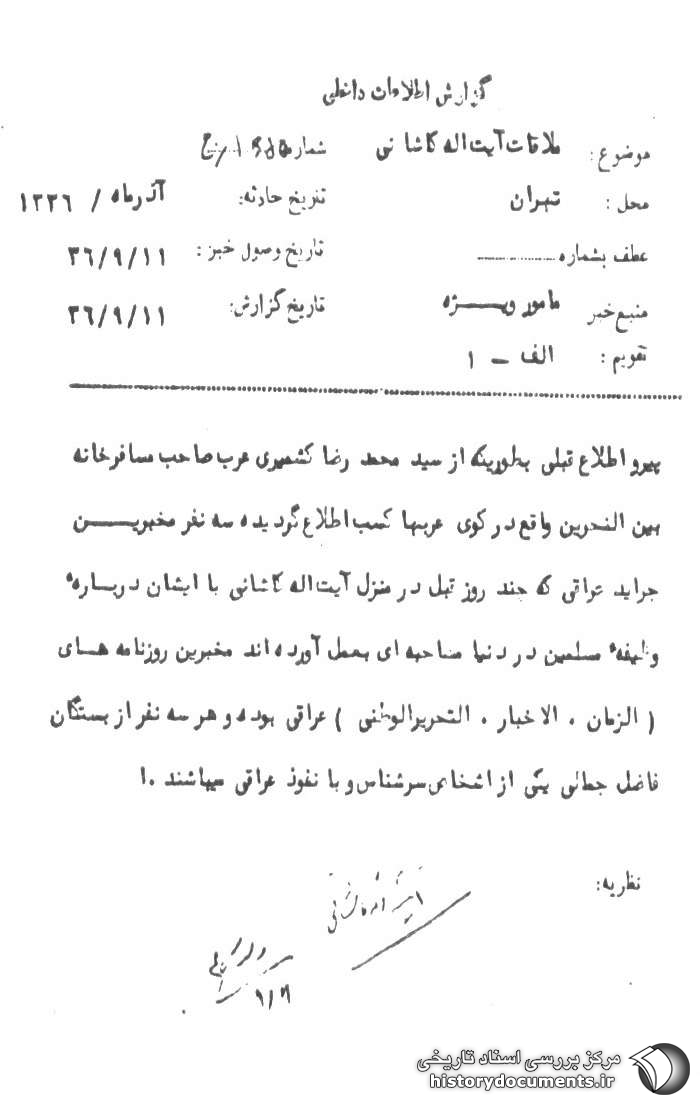 گزارش اطلاعات داخلی
موضوع: ملاقات آیت اله کاشانی شماره
محل: تهران تاریخ حادثه: آذرماه / ۱۳۳۶
عطف بشماره تاریخ وصول خبر: ۳۶/۹/۱۱
منبع خبر مامور ویـــژه تاریخ گزارش: ۳۶/۹/۱۱
تقویم: الف – ۱
پیرو اطلاع قبلی بطوریکه از سید محمد رضا کشمیری عرب صاحب مسافرخانه
بین النحرین واقع در کوی عربها کسب اطلاع گردیده سه نفر مخبریـــن
جراید عراقی که چند روز قبل در منزل آیت اله کاشانی با ایشان درباره‌ٔ
وظیفهٔ مسلمین در دنیا مصاحبه ای بعمل آورده اند مخبرین روزنامه هــای
( الزمان ، الاخبار ، التحریرالوطنی ) عراقی بوده و هر سه نفر از بستگان
فاضل جمالی یکی از اشخاص سرشناس و با نفوذ عراقی میباشند ۱۰
نظریه:
مرکز بررسی اسناد تاریخی
historydocuments.ir